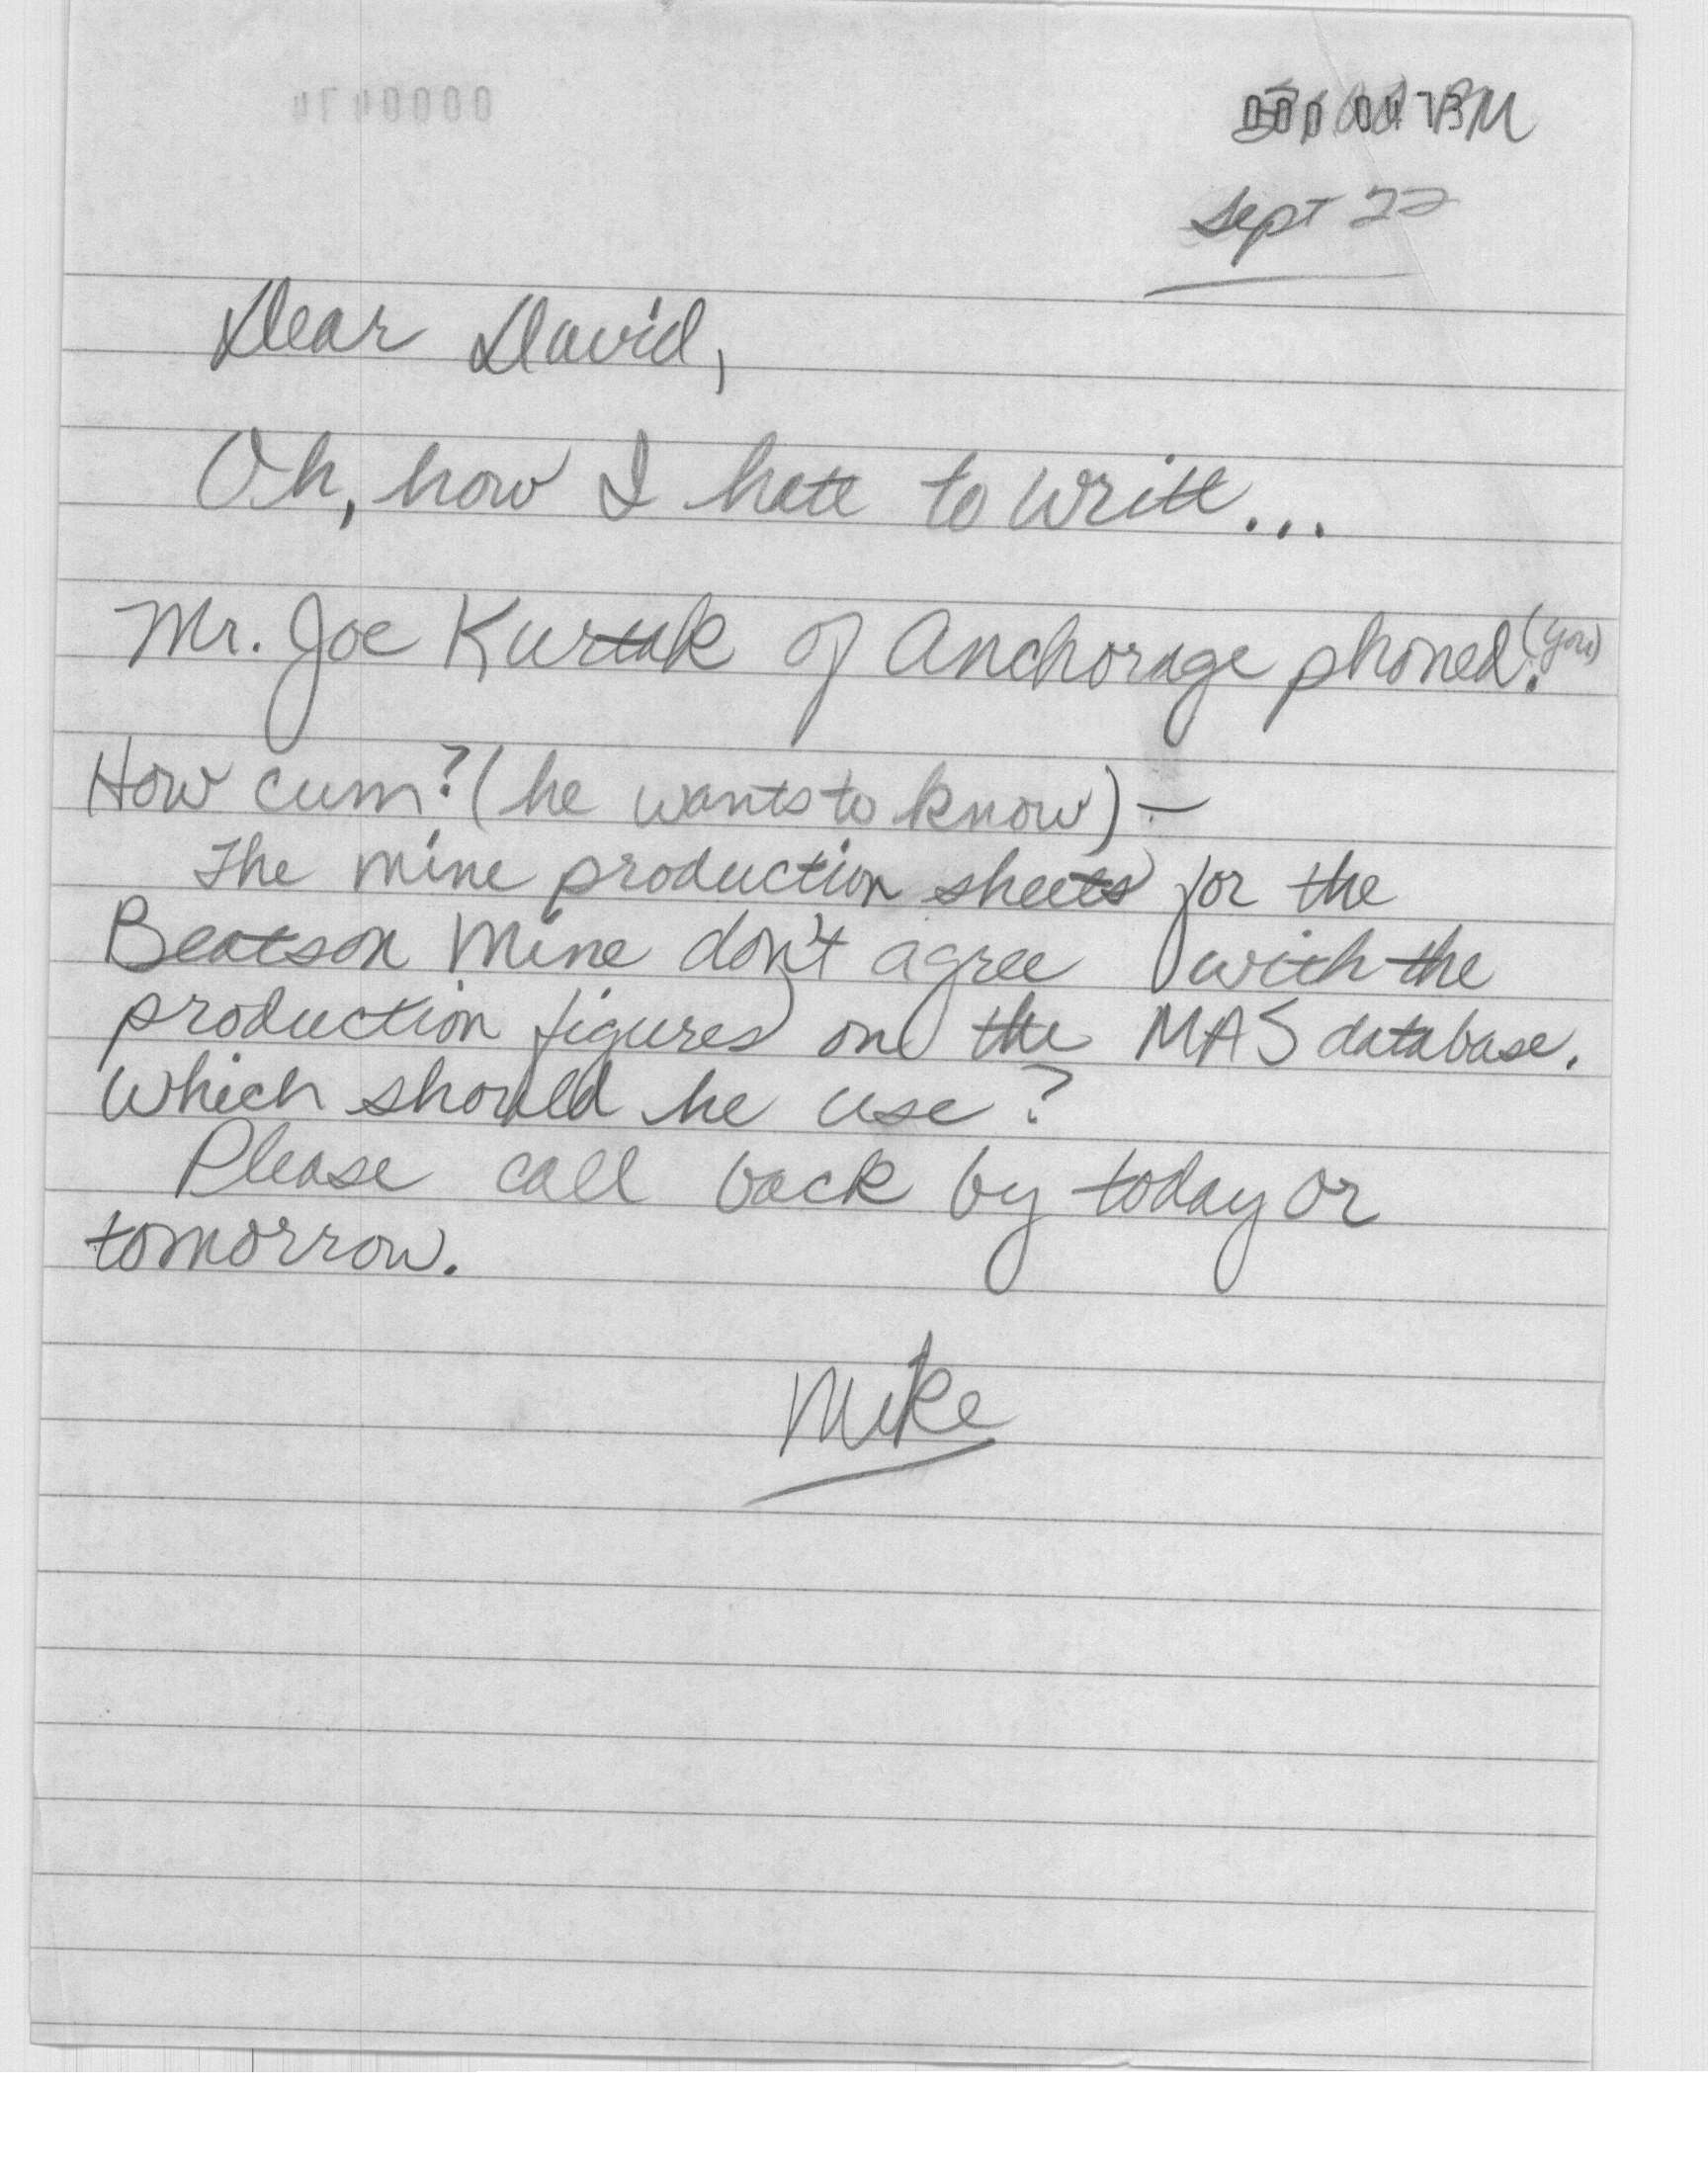 PM
Sept 22
Dear David,
Oh, how I hate to write...
Mr. Joe Kurtak of Anchorage phoned. (you)
How cum? (he wants to know) —
The mine production sheets for the
Beatson Mine don't agree with the
production figures on the MAS database.
Which should he use?
Please call back by today or
tomorrow.
Mike